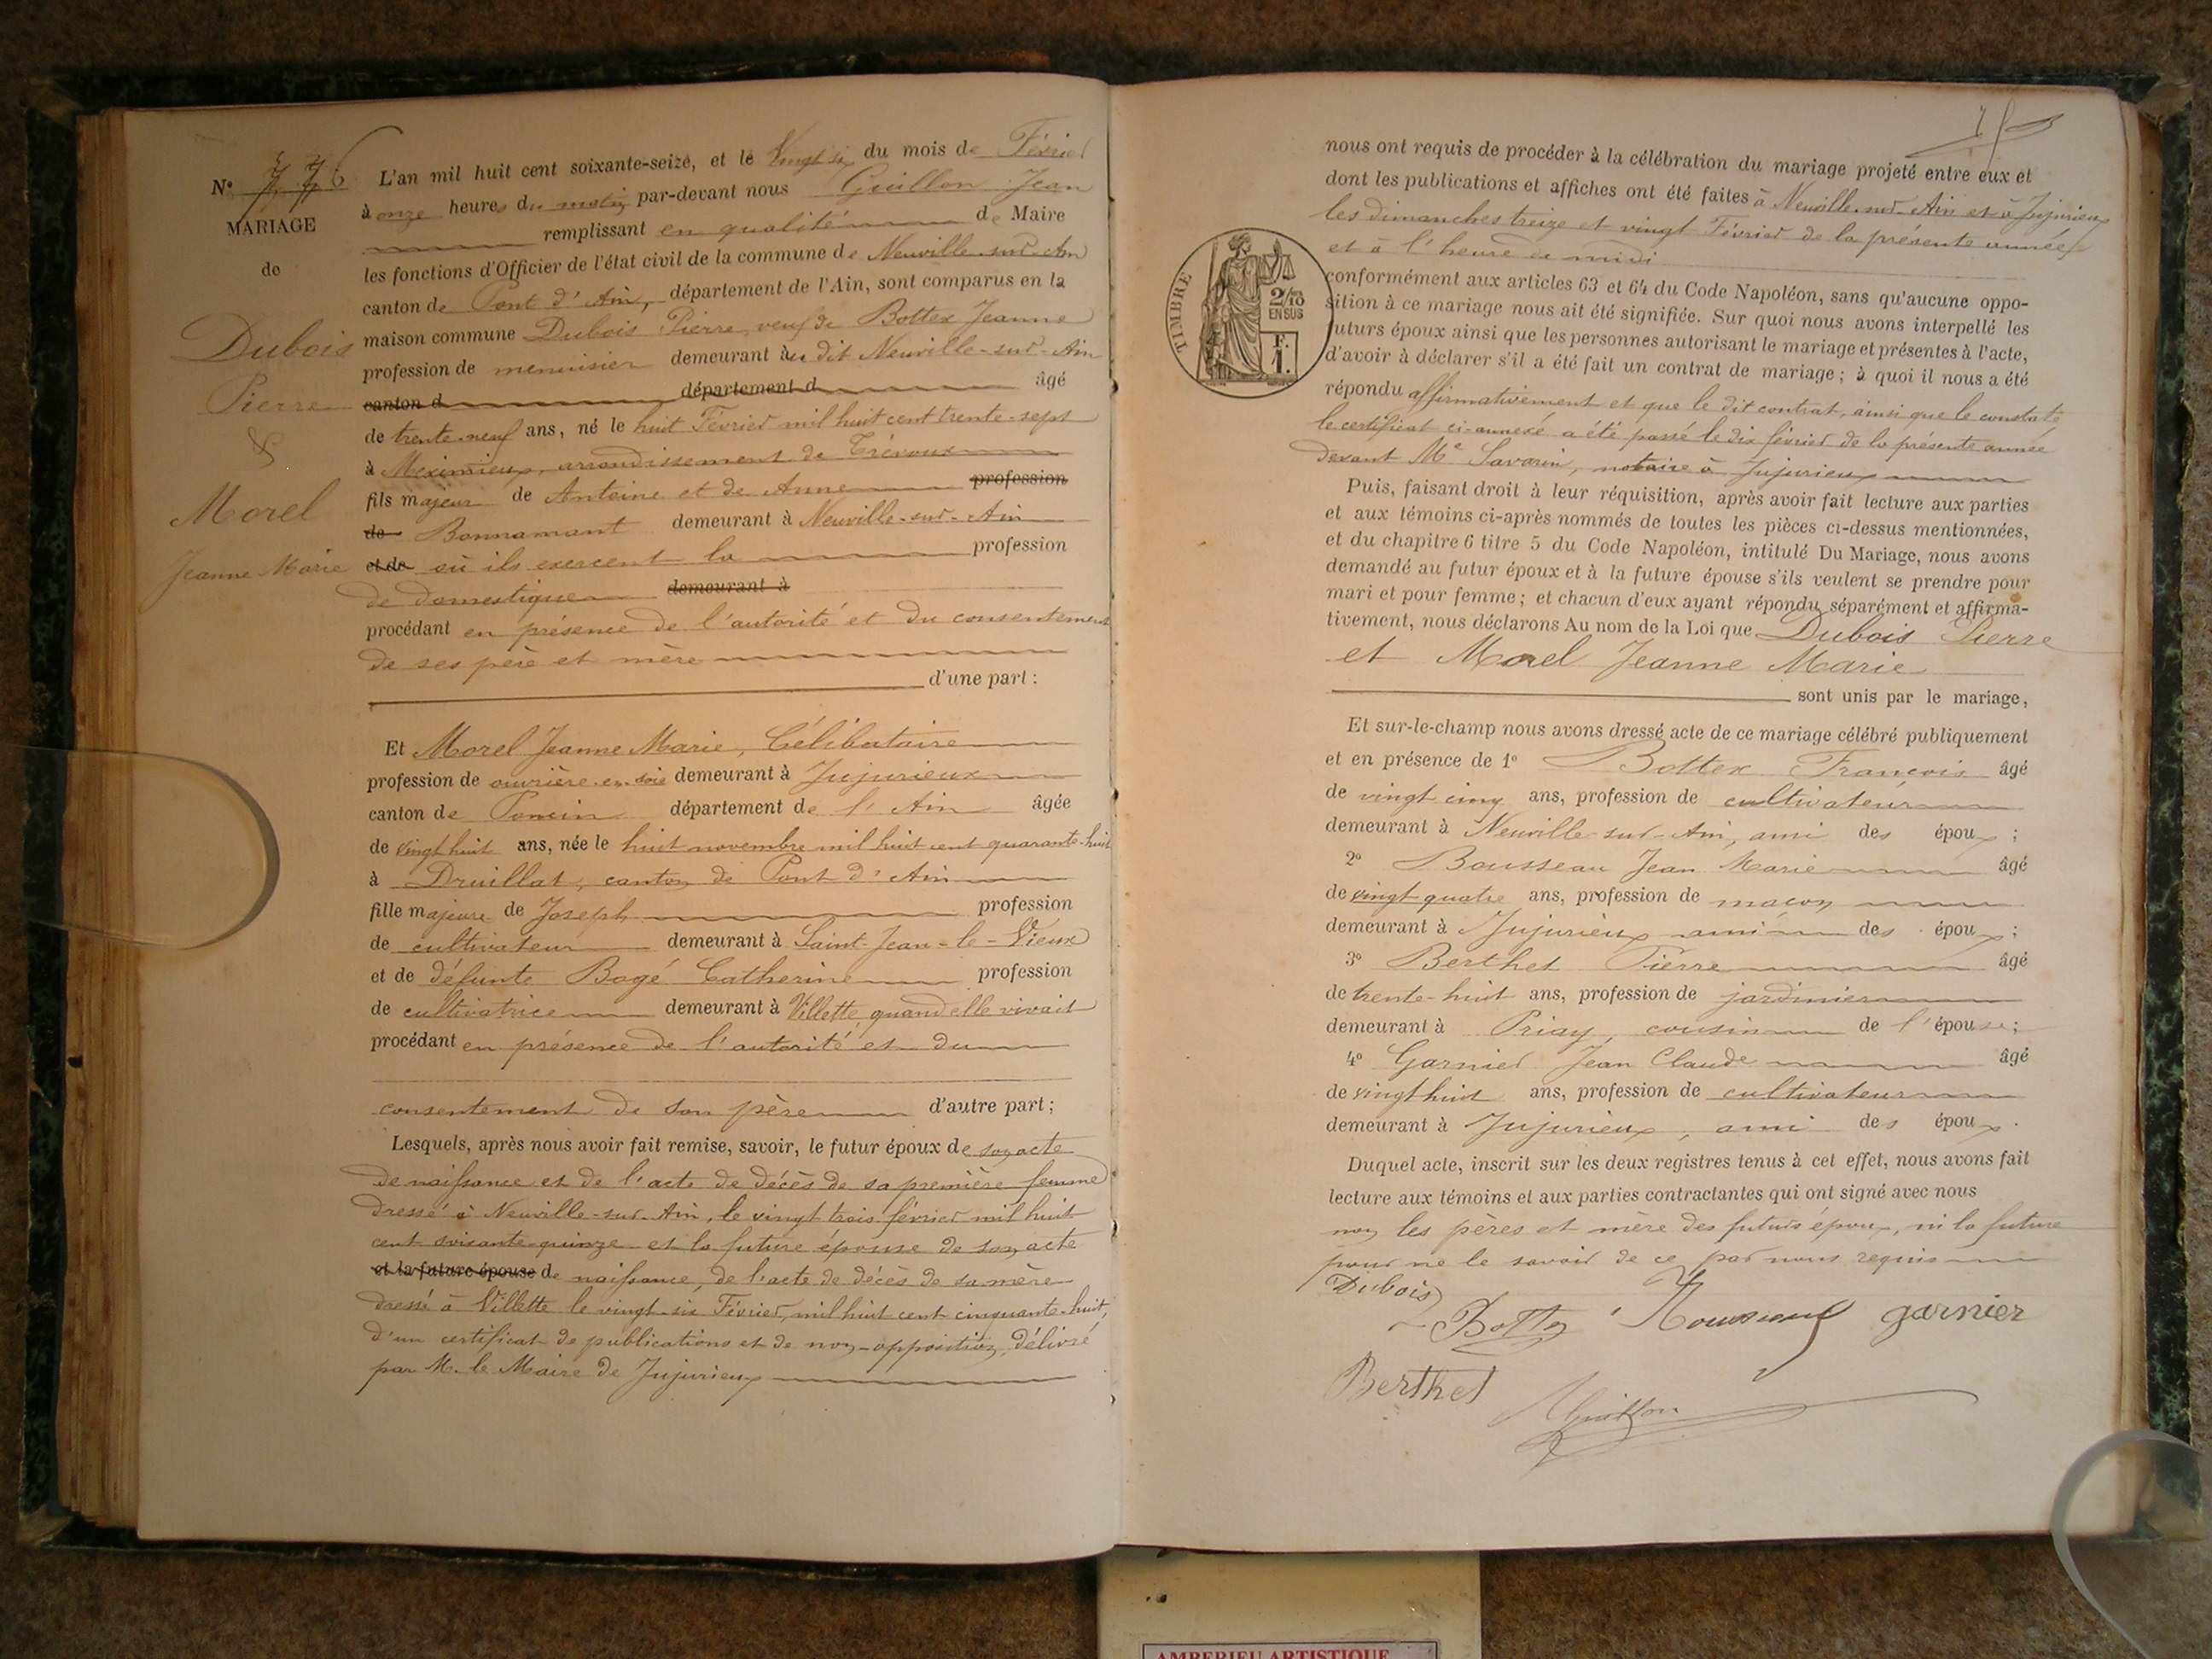 N° 6
MARIAGE
de
Dubois
Pierre
&
Morel
Jeanne Marie
L'an mil huit cent soixante-seize, et le Vingt six du mois de Février
à onze heures du matin par-devant nous Guillon Jean
remplissant en qualité de Maire
les fonctions d'Officier de l'état civil de la commune de Neuville-sur-Ain
canton de Pont d'Ain, département de l'Ain, sont comparus en la
maison commune Dubois Pierre, veuf de Bottex Jeanne
profession de menuisier demeurant au dit Neuville-sur-Ain
canton d département d âgé
de trente-neuf ans, né le huit Février mil huit cent trente-sept
à Meximieux, arrondissement de Trévoux
fils majeur de Antoine et de Anne profession
de Bonnamant demeurant à Neuville-sur-Ain
et de où ils exercent la profession
de domestiques demeurant à
procédant en présence de l'autorité et du consentement
de ses père et mère
d'une part :
Et Morel Jeanne Marie, Célibataire
profession de ouvrière en soie demeurant à Jujurieux
canton de Poncin département de l'Ain âgée
de vingt huit ans, née le huit novembre mil huit cent quarante-huit
à Druillat, canton de Pont d'Ain
fille majeure de Joseph profession
de cultivateur demeurant à Saint-Jean-le-Vieux
et de défunte Bogé Catherine profession
de cultivatrice demeurant à Villette quand elle vivait
procédant en présence de l'autorité et du
consentement de son père d'autre part ;
Lesquels, après nous avoir fait remise, savoir, le futur époux de son acte
de naissance et de l'acte de décès de sa première femme
dressé à Neuville-sur-Ain, le vingt trois février mil huit
cent soixante-quinze et la future épouse de son acte
et la future épouse de naissance, de l'acte de décès de sa mère
dressé à Villette le vingt-six Février, mil huit cent cinquante-huit,
d'un certificat de publications et de non-opposition, délivré
par M. le Maire de Jujurieux
nous ont requis de procéder à la célébration du mariage projeté entre eux et
dont les publications et affiches ont été faites à Neuville-sur-Ain et à Jujurieux
les dimanches treize et vingt Février de la présente année
et à l'heure de midi
conformément aux articles 63 et 64 du Code Napoléon, sans qu'aucune oppo-
sition à ce mariage nous ait été signifiée. Sur quoi nous avons interpellé les
futurs époux ainsi que les personnes autorisant le mariage et présentes à l'acte,
d'avoir à déclarer s'il a été fait un contrat de mariage ; à quoi il nous a été
répondu affirmativement et que le dit contrat, ainsi que le constate
le certificat ci-annexé a été passé le dix février de la présente année
devant Me Savarin, notaire à Jujurieux
TIMBRE
2/10
EN SUS
F.
1.
Puis, faisant droit à leur réquisition, après avoir fait lecture aux parties
et aux témoins ci-après nommés de toutes les pièces ci-dessus mentionnées,
et du chapitre 6 titre 5 du Code Napoléon, intitulé Du Mariage, nous avons
demandé au futur époux et à la future épouse s'ils veulent se prendre pour
mari et pour femme ; et chacun d'eux ayant répondu séparément et affirma-
tivement, nous déclarons Au nom de la Loi que Dubois Pierre
et Morel Jeanne Marie
sont unis par le mariage,
Et sur-le-champ nous avons dressé acte de ce mariage célébré publiquement
et en présence de 1° Bottex François âgé
de vingt cinq ans, profession de cultivateur
demeurant à Neuville-sur-Ain, ami des époux ;
2° Bousseau Jean Marie âgé
de vingt quatre ans, profession de maçon
demeurant à Jujurieux ami des époux ;
3° Berthet Pierre âgé
de trente-huit ans, profession de jardinier
demeurant à Priay, cousin de l'épouse ;
4° Garnier Jean Claude âgé
de vingt huit ans, profession de cultivateur
demeurant à Jujurieux, ami des époux.
Duquel acte, inscrit sur les deux registres tenus à cet effet, nous avons fait
lecture aux témoins et aux parties contractantes qui ont signé avec nous
non les pères et mère des futurs époux, ni la future
pour ne le savoir de ce par nous requis
Dubois
Bottex garnier
Berthet
Guillon
AMBERIEU ARTISTIQUE